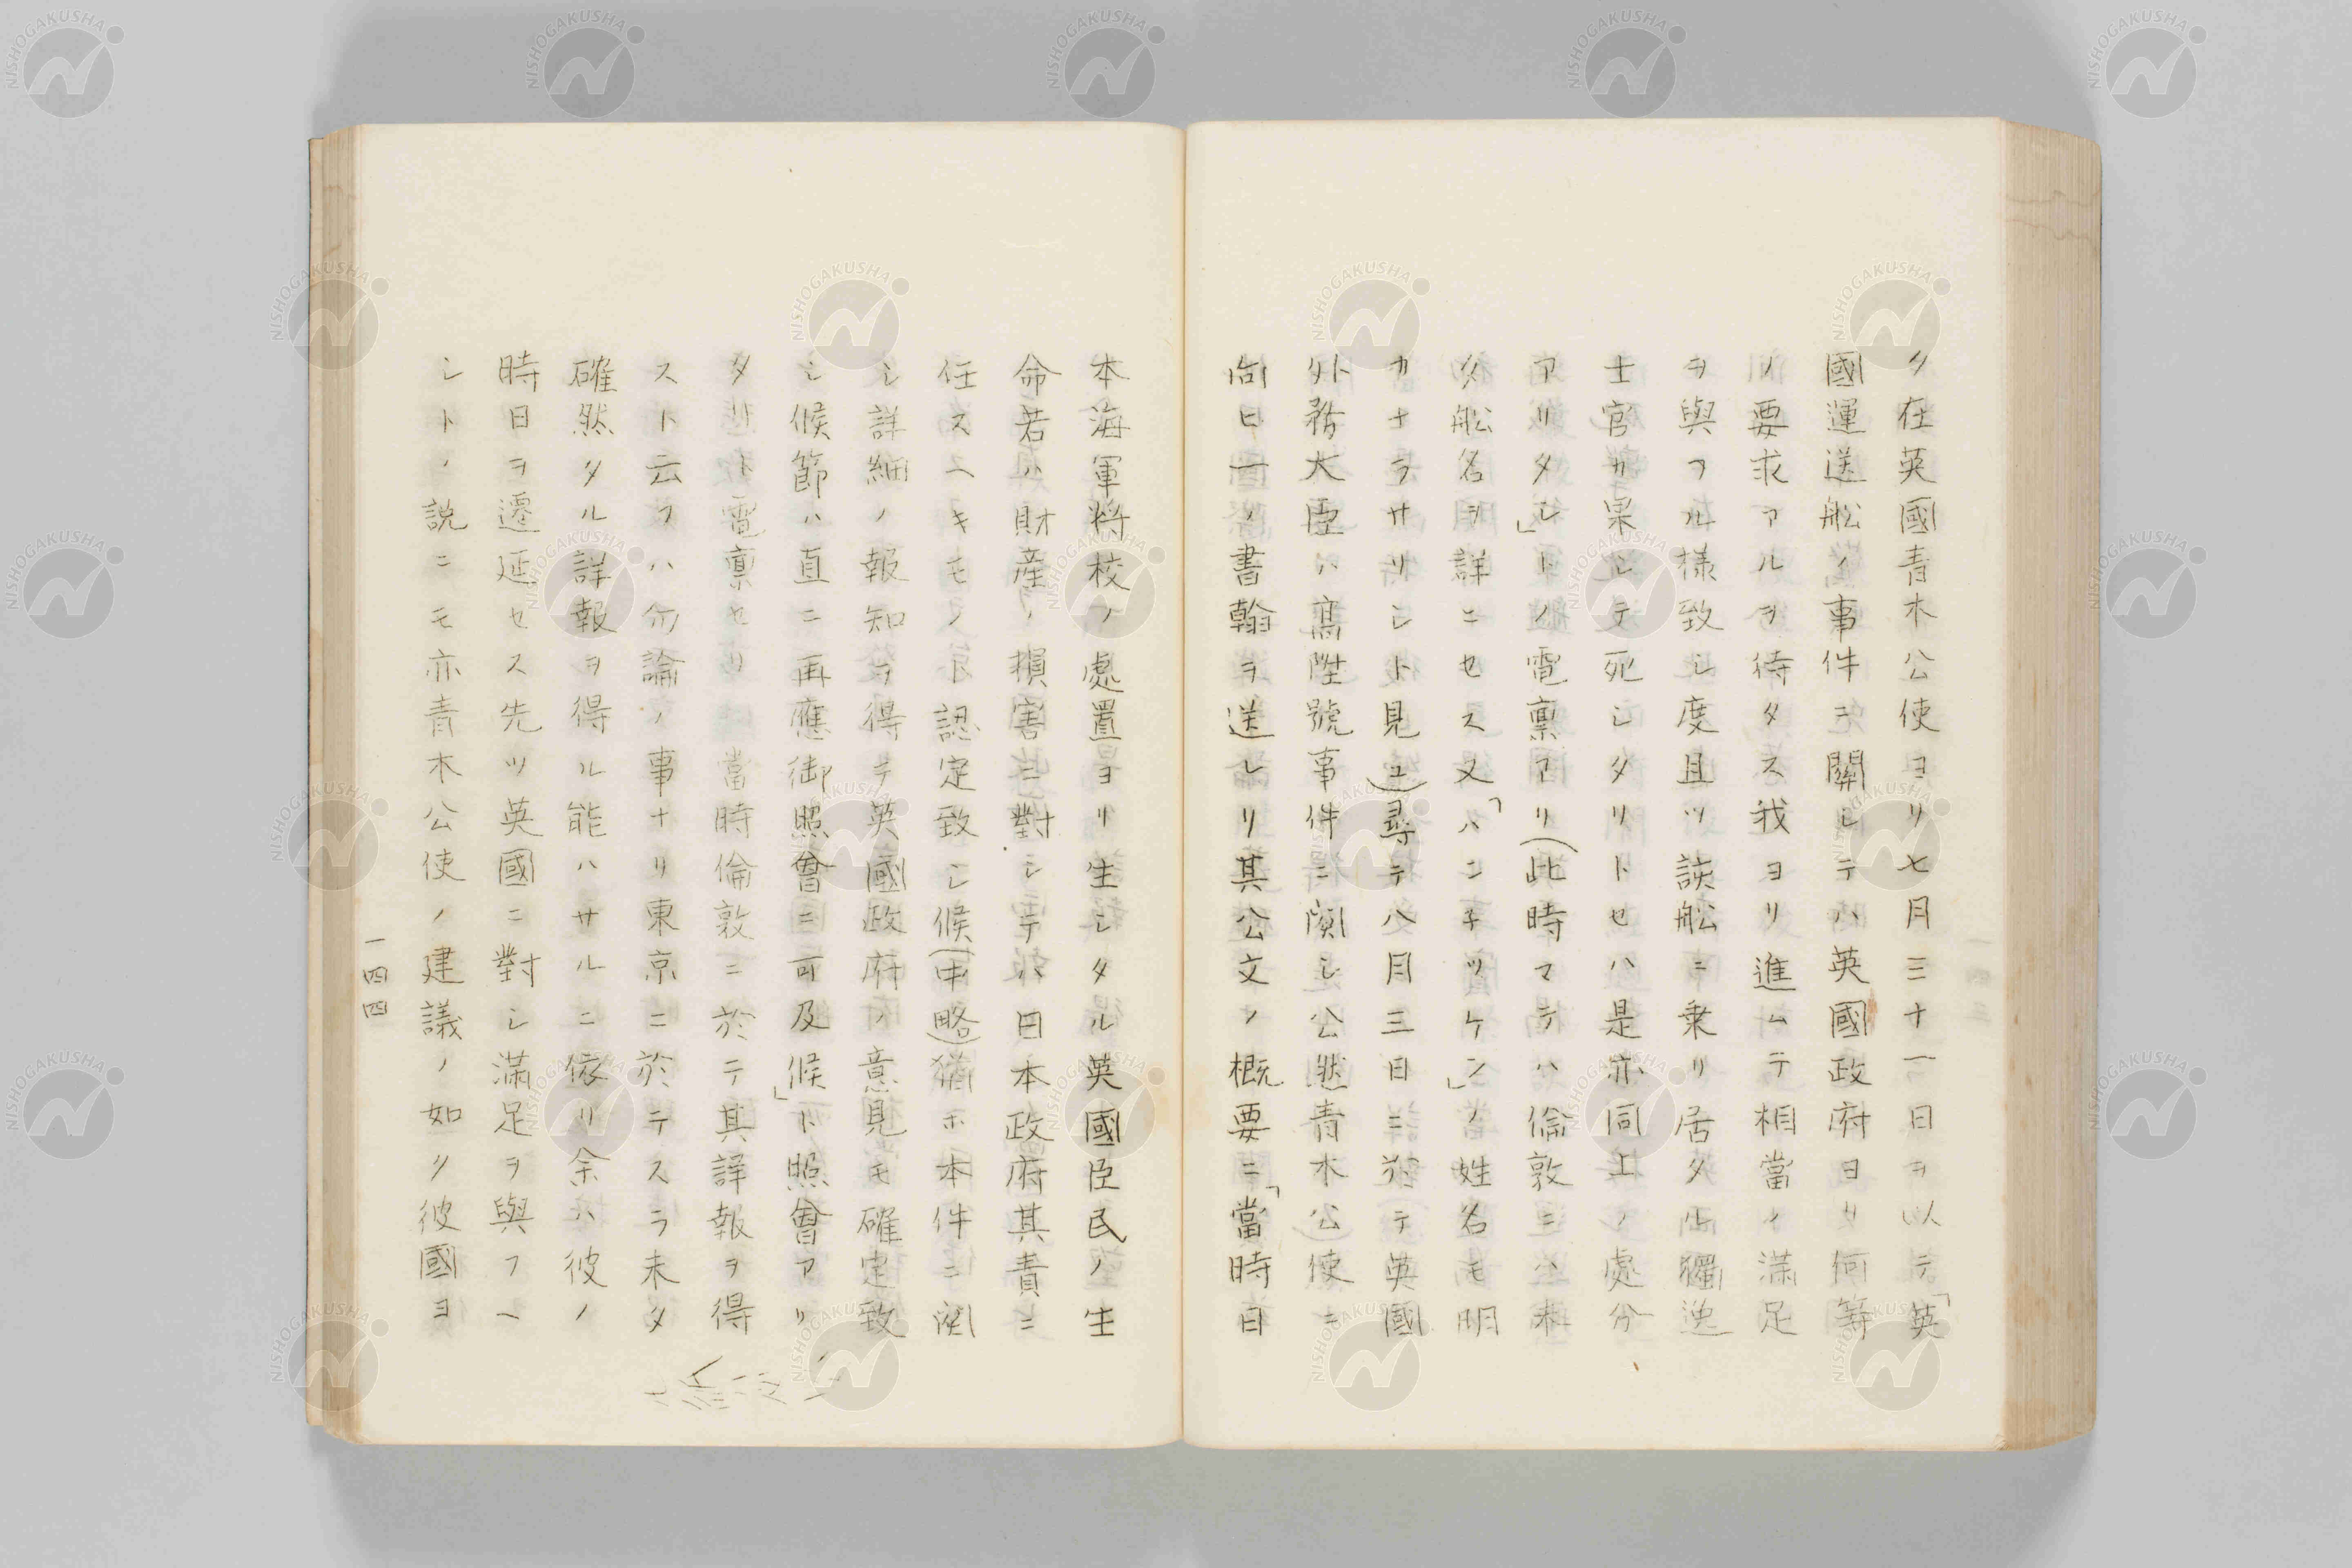 ク在英國青木公使ヨリ七月三十一日ヲ以テ「英
國運送舩ノ事件ニ關シテハ英國政府ヨリ何等
ノ要求アルヲ待タス我ヨリ進ムテ相當ノ滿足
ヲ與フル樣致シ度且ツ該舩ニ乗リ居タル獨逸
士官カ果シテ死シタリトセハ是亦同上ノ處分
アリタシ」トノ電禀アリ(此時マテハ倫敦ニハ未
タ舩名ヲ詳ニセス又ハ「ンネツケン」ノ姓名モ明
カナラサリシト見ユ)尋テ八月三日ニ於テ英國
外務大臣ハ高陞號事件ニ関シ公然青木公使ニ
向ヒ一ノ書翰ヲ送レリ其公文ノ概要ニ「當時日
本海軍将校ノ處置ヨリ生シタル英國臣民ノ生
命若ハ財産ノ損害ニ對シテハ日本政府其責ニ
任スヘキモノト認定致シ候(中略)猶ホ本件ニ関
シ詳細ノ報知ヲ得テ英國政府ノ意見モ確定致
シ候節ハ直ニ再應御照會ニ可及候」ト照會アリ
タリト電禀セリ 當時倫敦ニ於テ其詳報ヲ得
スト云フハ勿論ノ事ナリ東京ニ於テスラ未タ
確然タル詳報ヲ得ル能ハサルニ依リ余ハ彼ノ
時日ヲ遷延セス先ツ英國ニ對シ滿足ヲ與フヘ
シトノ説ニモ亦青木公使ノ建議ノ如ク彼國ヨ
一四四
NISHOGAKUSHA